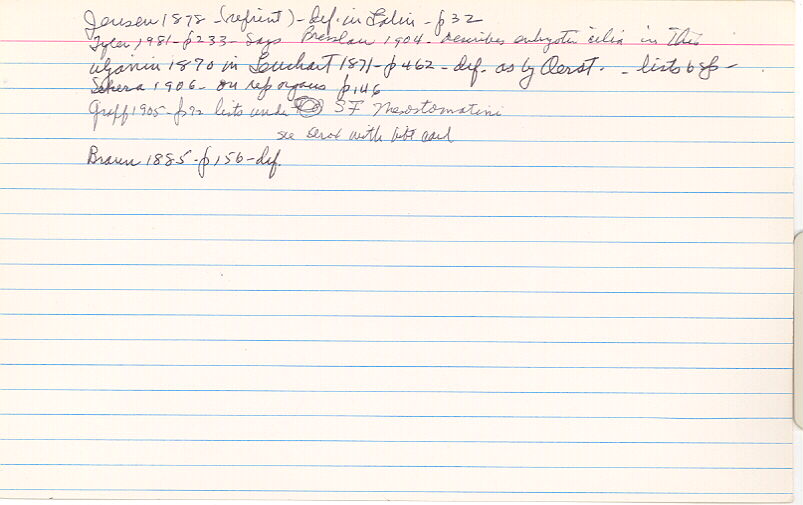 Jensen 1878 - (reprint) - def. in Latin - p 32
Tyler 1981 - p 233 - Says Bresslau 1904 - describes embryotic cilia in This
Uljanin 1870 in Leuckart 1871 - p 462 - def. as by Oerst. - lists 6 sp -
Sekera 1906 - on rep organs p. 146
Graff 1905 - p 72 lists under SF Mesostomatini
see with card
Braun 1885 - p 156 - def.